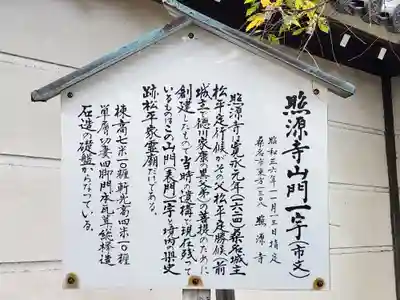 照源寺山門一宇(市文)
昭和三六年一一月一三日指定
桑名市東方一三〇八 照源寺
照源寺は寛永元年(一六二四)桑名城主
松平定行候がその父松平定勝候(前
城主・徳川家康の異父弟)の菩提のために
創建したもので当時の遺構で現在残って
いるものはこの山門(表門)一宇と境内の歴史
跡松平家霊廟だけである。
棟高七米一〇糎軒先高四米一〇糎
単層切妻四脚門本瓦葺で総欅造
石造の礎盤からなっている。